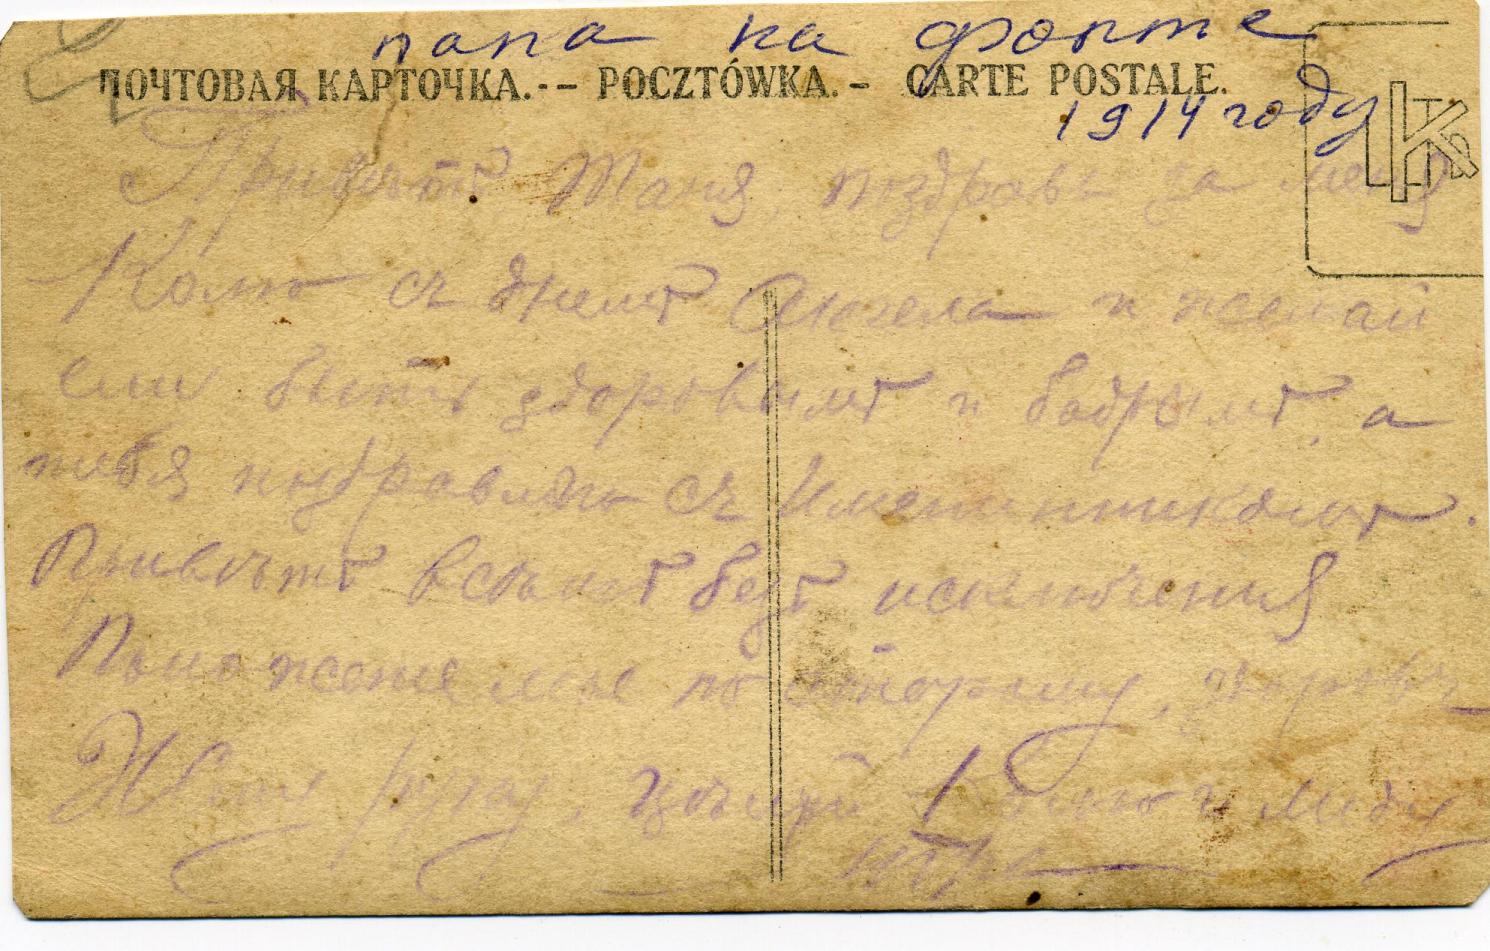 папа на фронте
ПОЧТОВАЯ КАРТОЧКА.-- POCZTÓWKA.- CARTE POSTALE.
1914 году
Привѣтъ Таня, поздравь за меня
Колю съ днемъ Ангела и желай
ему быть здоровымъ и бодрымъ, а
тебя поздравляю съ Именинникомъ.
Привѣтъ всѣмъ безъ исключения
Положение мое по старому, здоровъ
Жму руку, цѣлуй Колю и Лиду